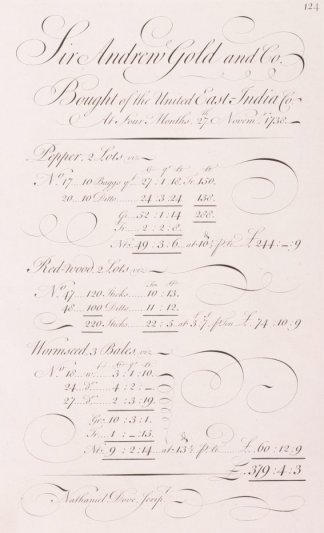 124
Sir Andrew Gold and Co.
Bought of the United East-India Co.
At Four Months. 27th Novemr. 1738.
Pepper, 2 Lots, viz
C q lb lb
No. 17... 10 Baggs qt. 27:1:18. Tr. 150.
20... 10 Ditto...... 24:3:24 138.
Gr. 52:1:14 288.
Tr. 2:2:8.
Nt. 49:3:6. at 10½ p lb £244:-:9
Redwood, 2 Lots, viz
No. 47.... 120 Sticks.... 10:13.
48.... 100 Ditto...... 11:12.
220 Sticks.... 22:5. at £3:7 p Ton £.74:10:9
Wormseed, 3 Bales, viz
C q lb
No. 18.. wt. 3:1:10.
24... do. 4:2:-.
27... do. 2:3:19.
Gr. 10:3:1.
Tr. 1:-:15.
Nt. 9:2:14 at 13½ p lb £.60:12:9
£.379:4:3
Nathaniel Dove Scrip.